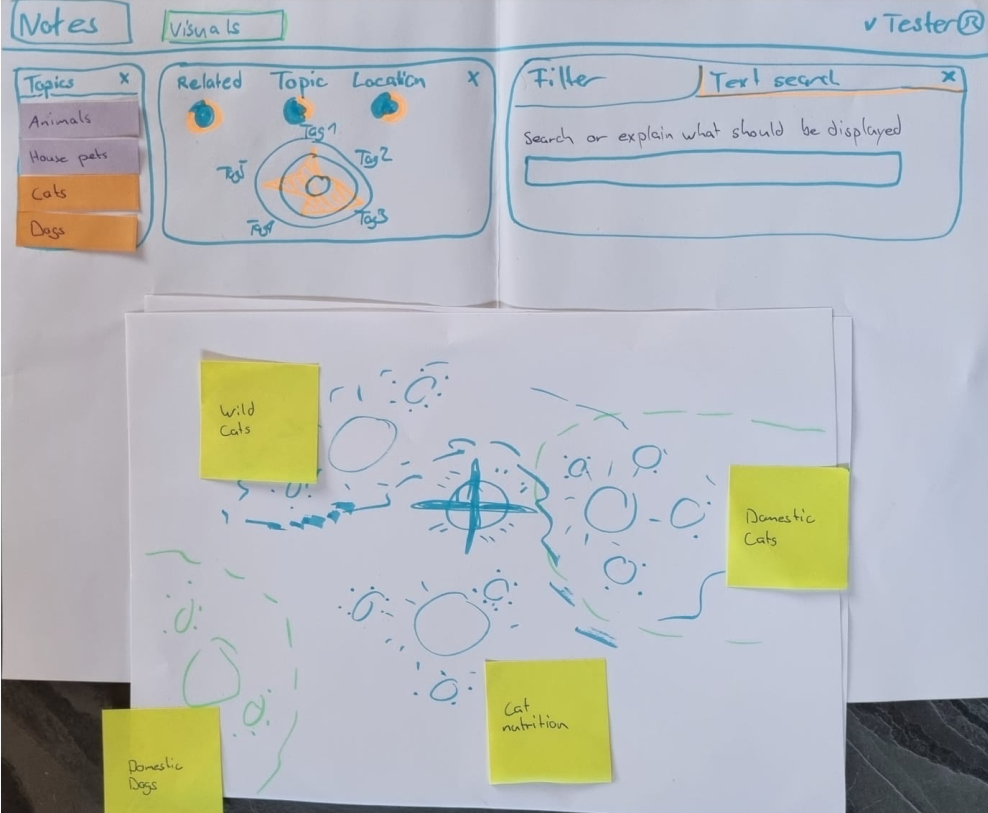 Notes
Visuals
v Tester R
Topics x
Animals
House pets
Cats
Dogs
Related Topic Location x
Tag1
Tag2
Tag3
Tag4
Tag5
Filter
Text search x
Search or explain what should be displayed
Wild
Cats
Domestic
Cats
Cat
nutrition
Domestic
Dogs